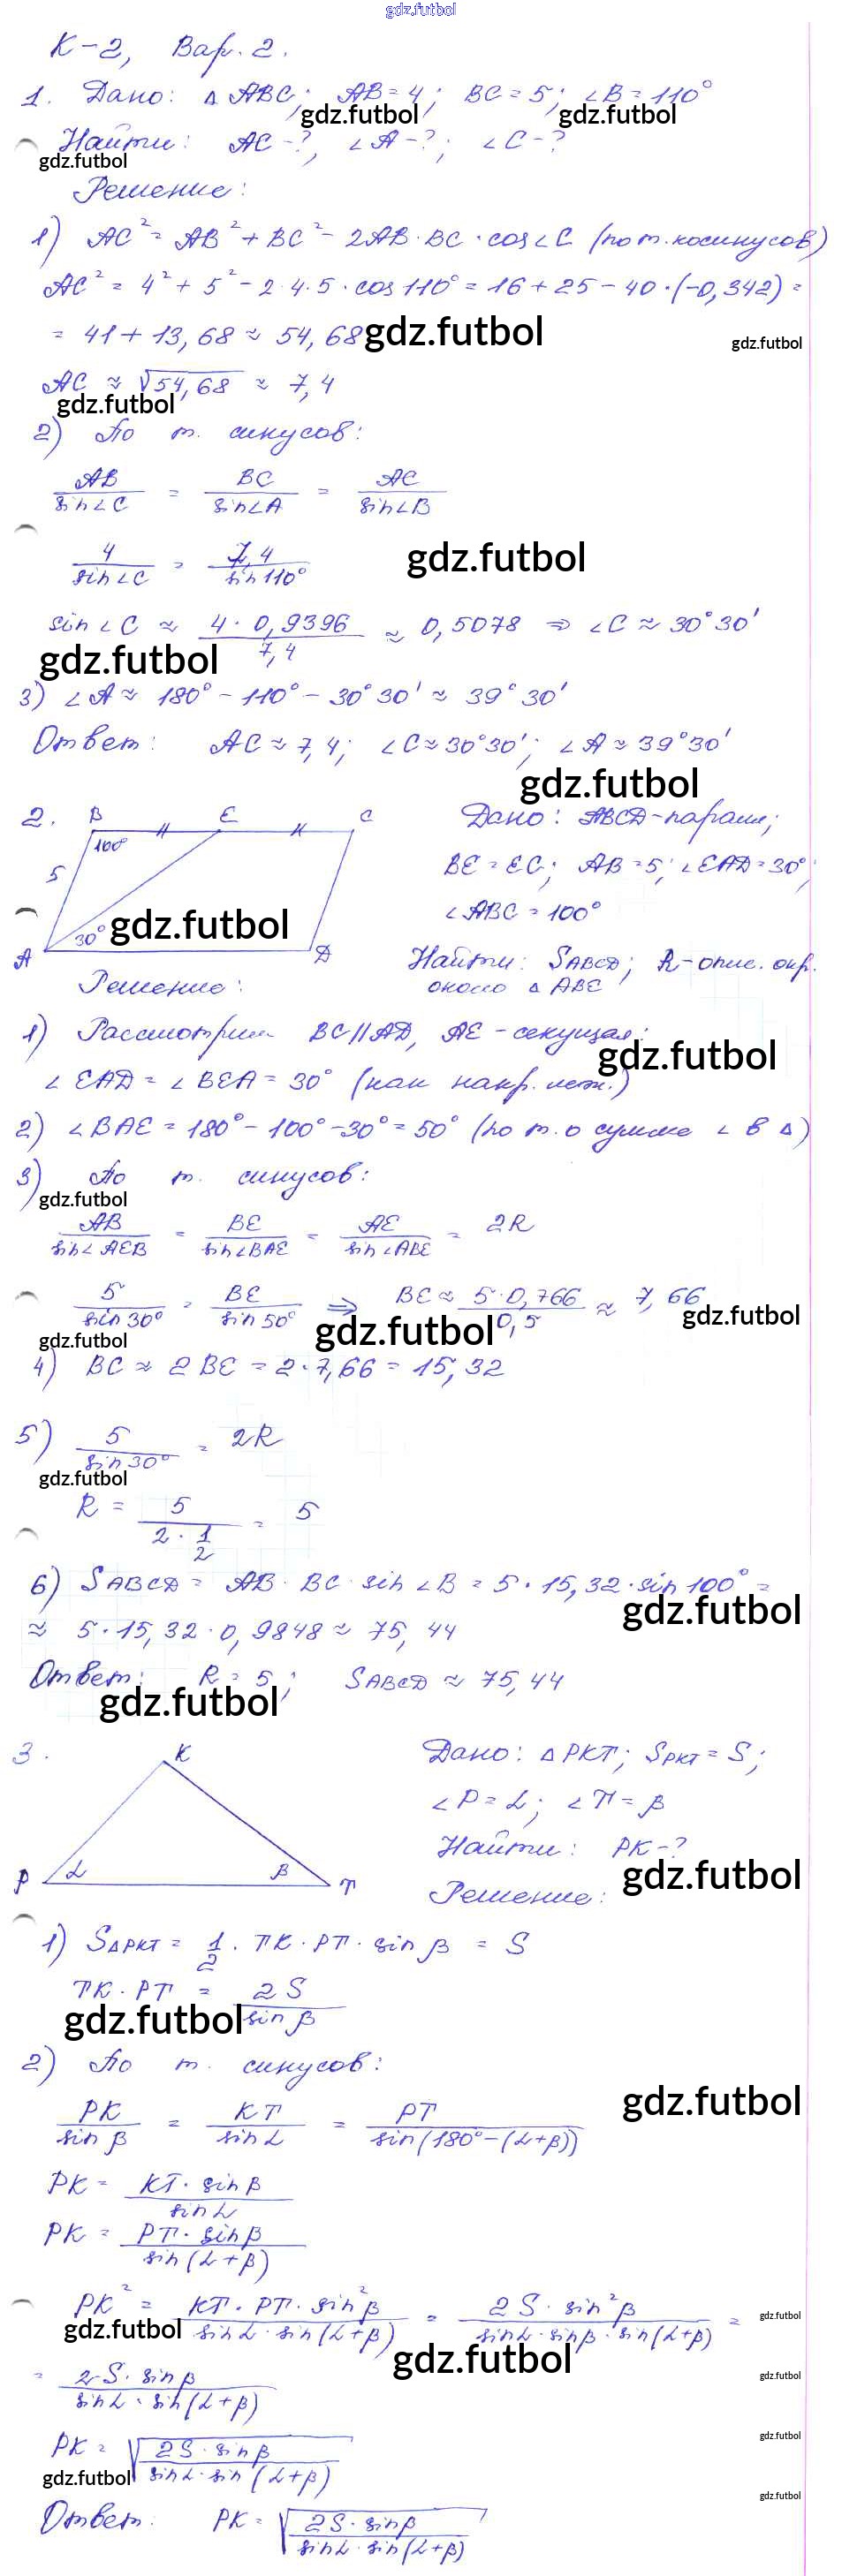 gdz.futbol
К-2, Вар. 2.
1. Дано: △ ABC; AB = 4; BC = 5; ∠B = 110°
gdz.futbol gdz.futbol
Найти: AC-?, ∠A-?; ∠C-?
gdz.futbol
Решение:
1) AC² = AB² + BC² - 2AB·BC·cos∠C (по т. косинусов)
AC² = 4² + 5² - 2·4·5·cos110° = 16 + 25 - 40·(-0,342) =
= 41 + 13,68 ≈ 54,68 gdz.futbol gdz.futbol
AC ≈ √54,68 ≈ 7,4
gdz.futbol
2) По т. синусов:
AB/sin∠C = BC/sin∠A = AC/sin∠B
4/sin∠C = 7,4/sin110° gdz.futbol
sin∠C ≈ 4·0,9396/7,4 ≈ 0,5078 ⇒ ∠C ≈ 30°30'
gdz.futbol
3) ∠A ≈ 180° - 110° - 30°30' ≈ 39°30'
Ответ: AC ≈ 7,4; ∠C ≈ 30°30'; ∠A ≈ 39°30'
gdz.futbol
2. B E C
100°
5
30° gdz.futbol
A D
Дано: ABCD-парал.;
BE = EC; AB = 5; ∠EAD = 30°;
∠ABC = 100°
Найти: SABCD; R-опис. окр.
около △ ABE
Решение:
1) Рассмотрим BC∥AD, AE-секущая:
gdz.futbol
∠EAD = ∠BEA = 30° (как накр. леж.)
2) ∠BAE = 180° - 100° - 30° = 50° (по т. о сумме ∠ в △)
3) По т. синусов:
gdz.futbol
AB/sin∠AEB = BE/sin∠BAE = AE/sin∠ABE = 2R
5/sin30° = BE/sin50° ⇒ BE ≈ 5·0,766/0,5 ≈ 7,66
gdz.futbol gdz.futbol gdz.futbol
4) BC ≈ 2BE = 2·7,66 = 15,32
5) 5/sin30° = 2R
gdz.futbol
R = 5/(2·1/2) = 5
6) SABCD = AB·BC·sin∠B = 5·15,32·sin100° =
gdz.futbol
≈ 5·15,32·0,9848 ≈ 75,44
Ответ: R = 5; SABCD ≈ 75,44
gdz.futbol
3. K
P α β T
Дано: △PKT; SPKT = S;
∠P = α; ∠T = β
Найти: PK-?
gdz.futbol
Решение:
1) S△PKT = 1/2·TK·PT·sinβ = S
TK·PT = 2S/sinβ
gdz.futbol
2) По т. синусов:
gdz.futbol
PK/sinβ = KT/sinα = PT/sin(180°-(α+β))
PK = KT·sinβ/sinα
PK = PT·sinβ/sin(α+β)
PK² = KT·PT·sin²β/(sinα·sin(α+β)) = 2S·sin²β/(sinα·sinβ·sin(α+β)) =
gdz.futbol gdz.futbol gdz.futbol
= 2S·sinβ/(sinα·sin(α+β))
gdz.futbol
PK = √(2S·sinβ/(sinα·sin(α+β)))
gdz.futbol
gdz.futbol gdz.futbol
Ответ: PK = √(2S·sinβ/(sinα·sin(α+β)))